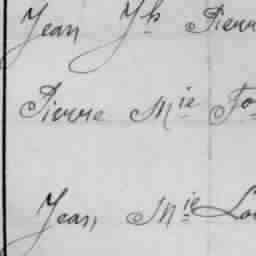 Jean Jh Pierr
Pierre Mie Fo
Jean Mie Lou